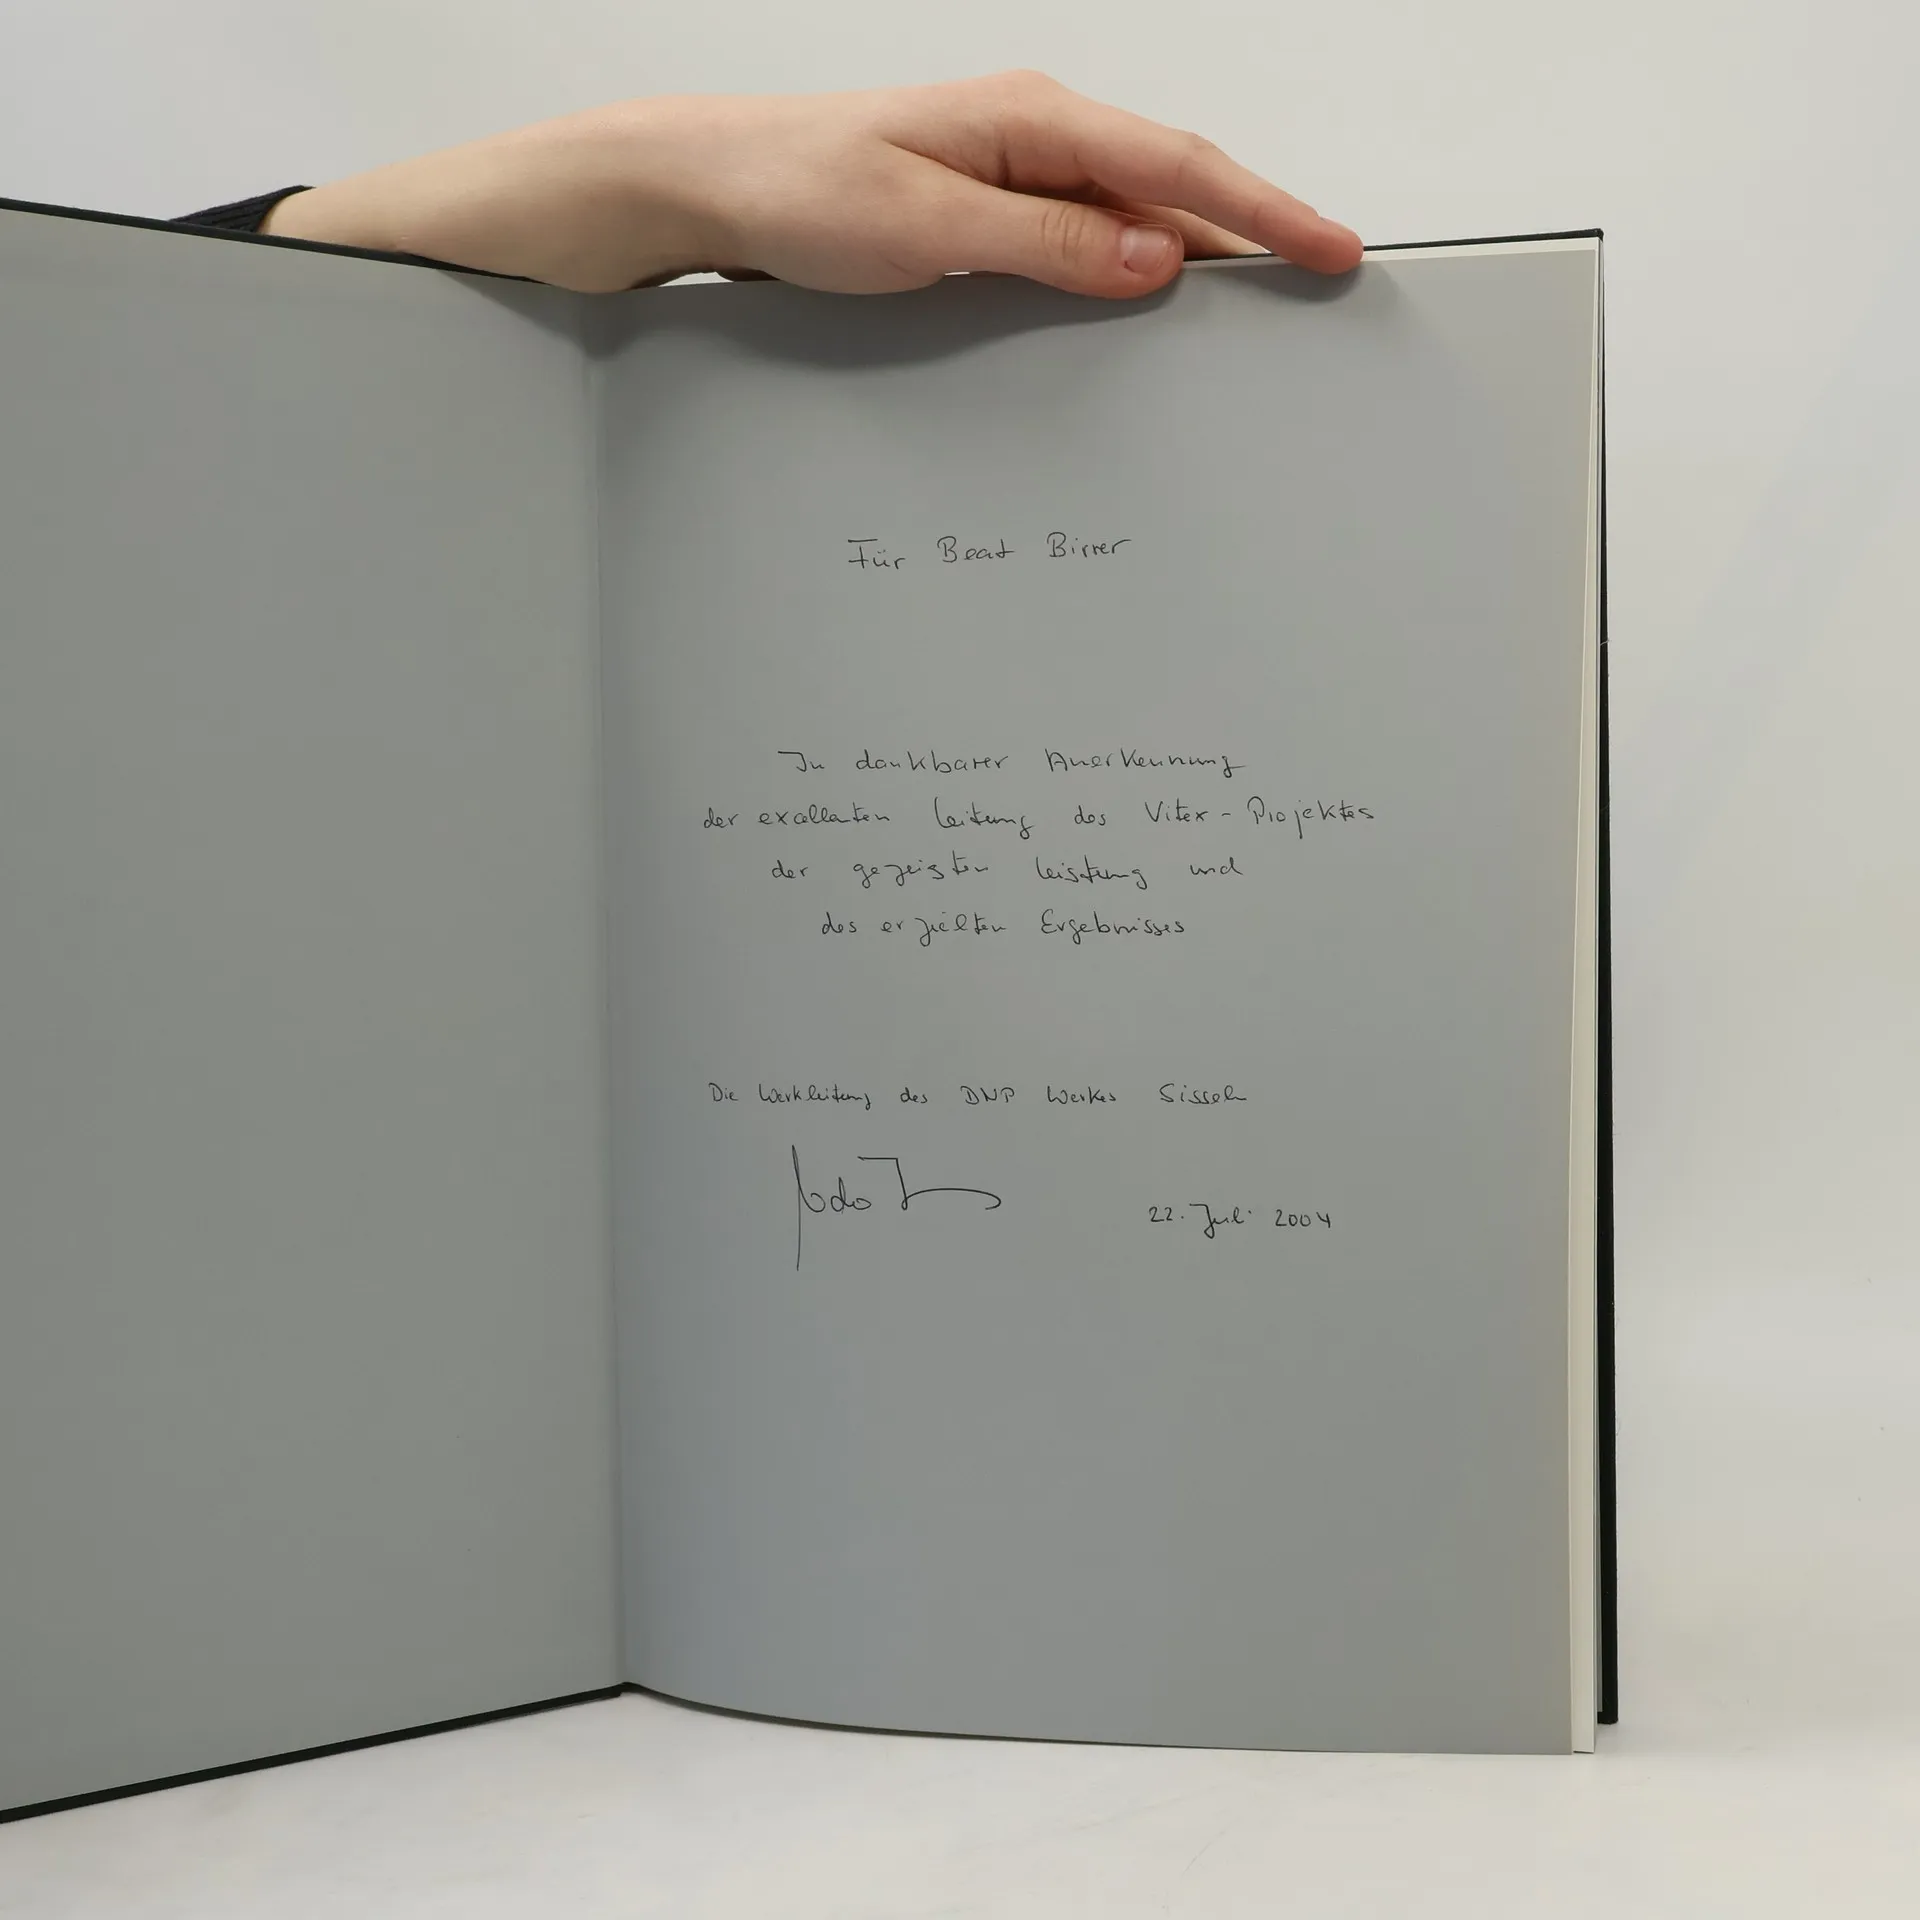 Für Beat Birrer
In dankbarer Anerkennung
der exzellenten Leitung des Vitex-Projektes
der gezeigten Leistung und
des erzielten Ergebnisses
Die Werkleitung des DNP Werkes Sisseln
22. Juli 2004